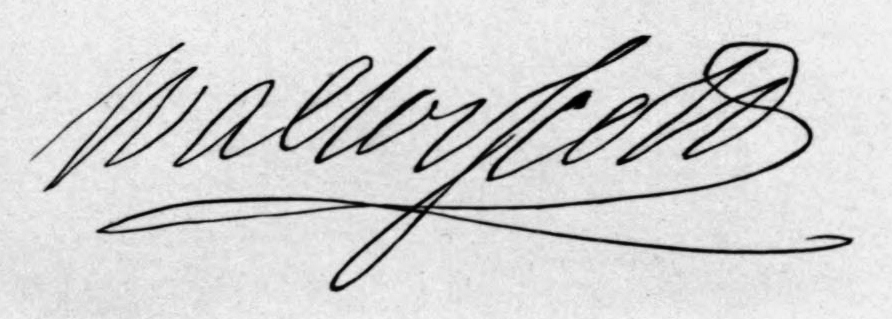 Walter Scott